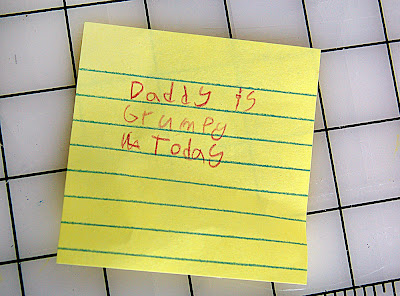 Daddy is
Grumpy
Today